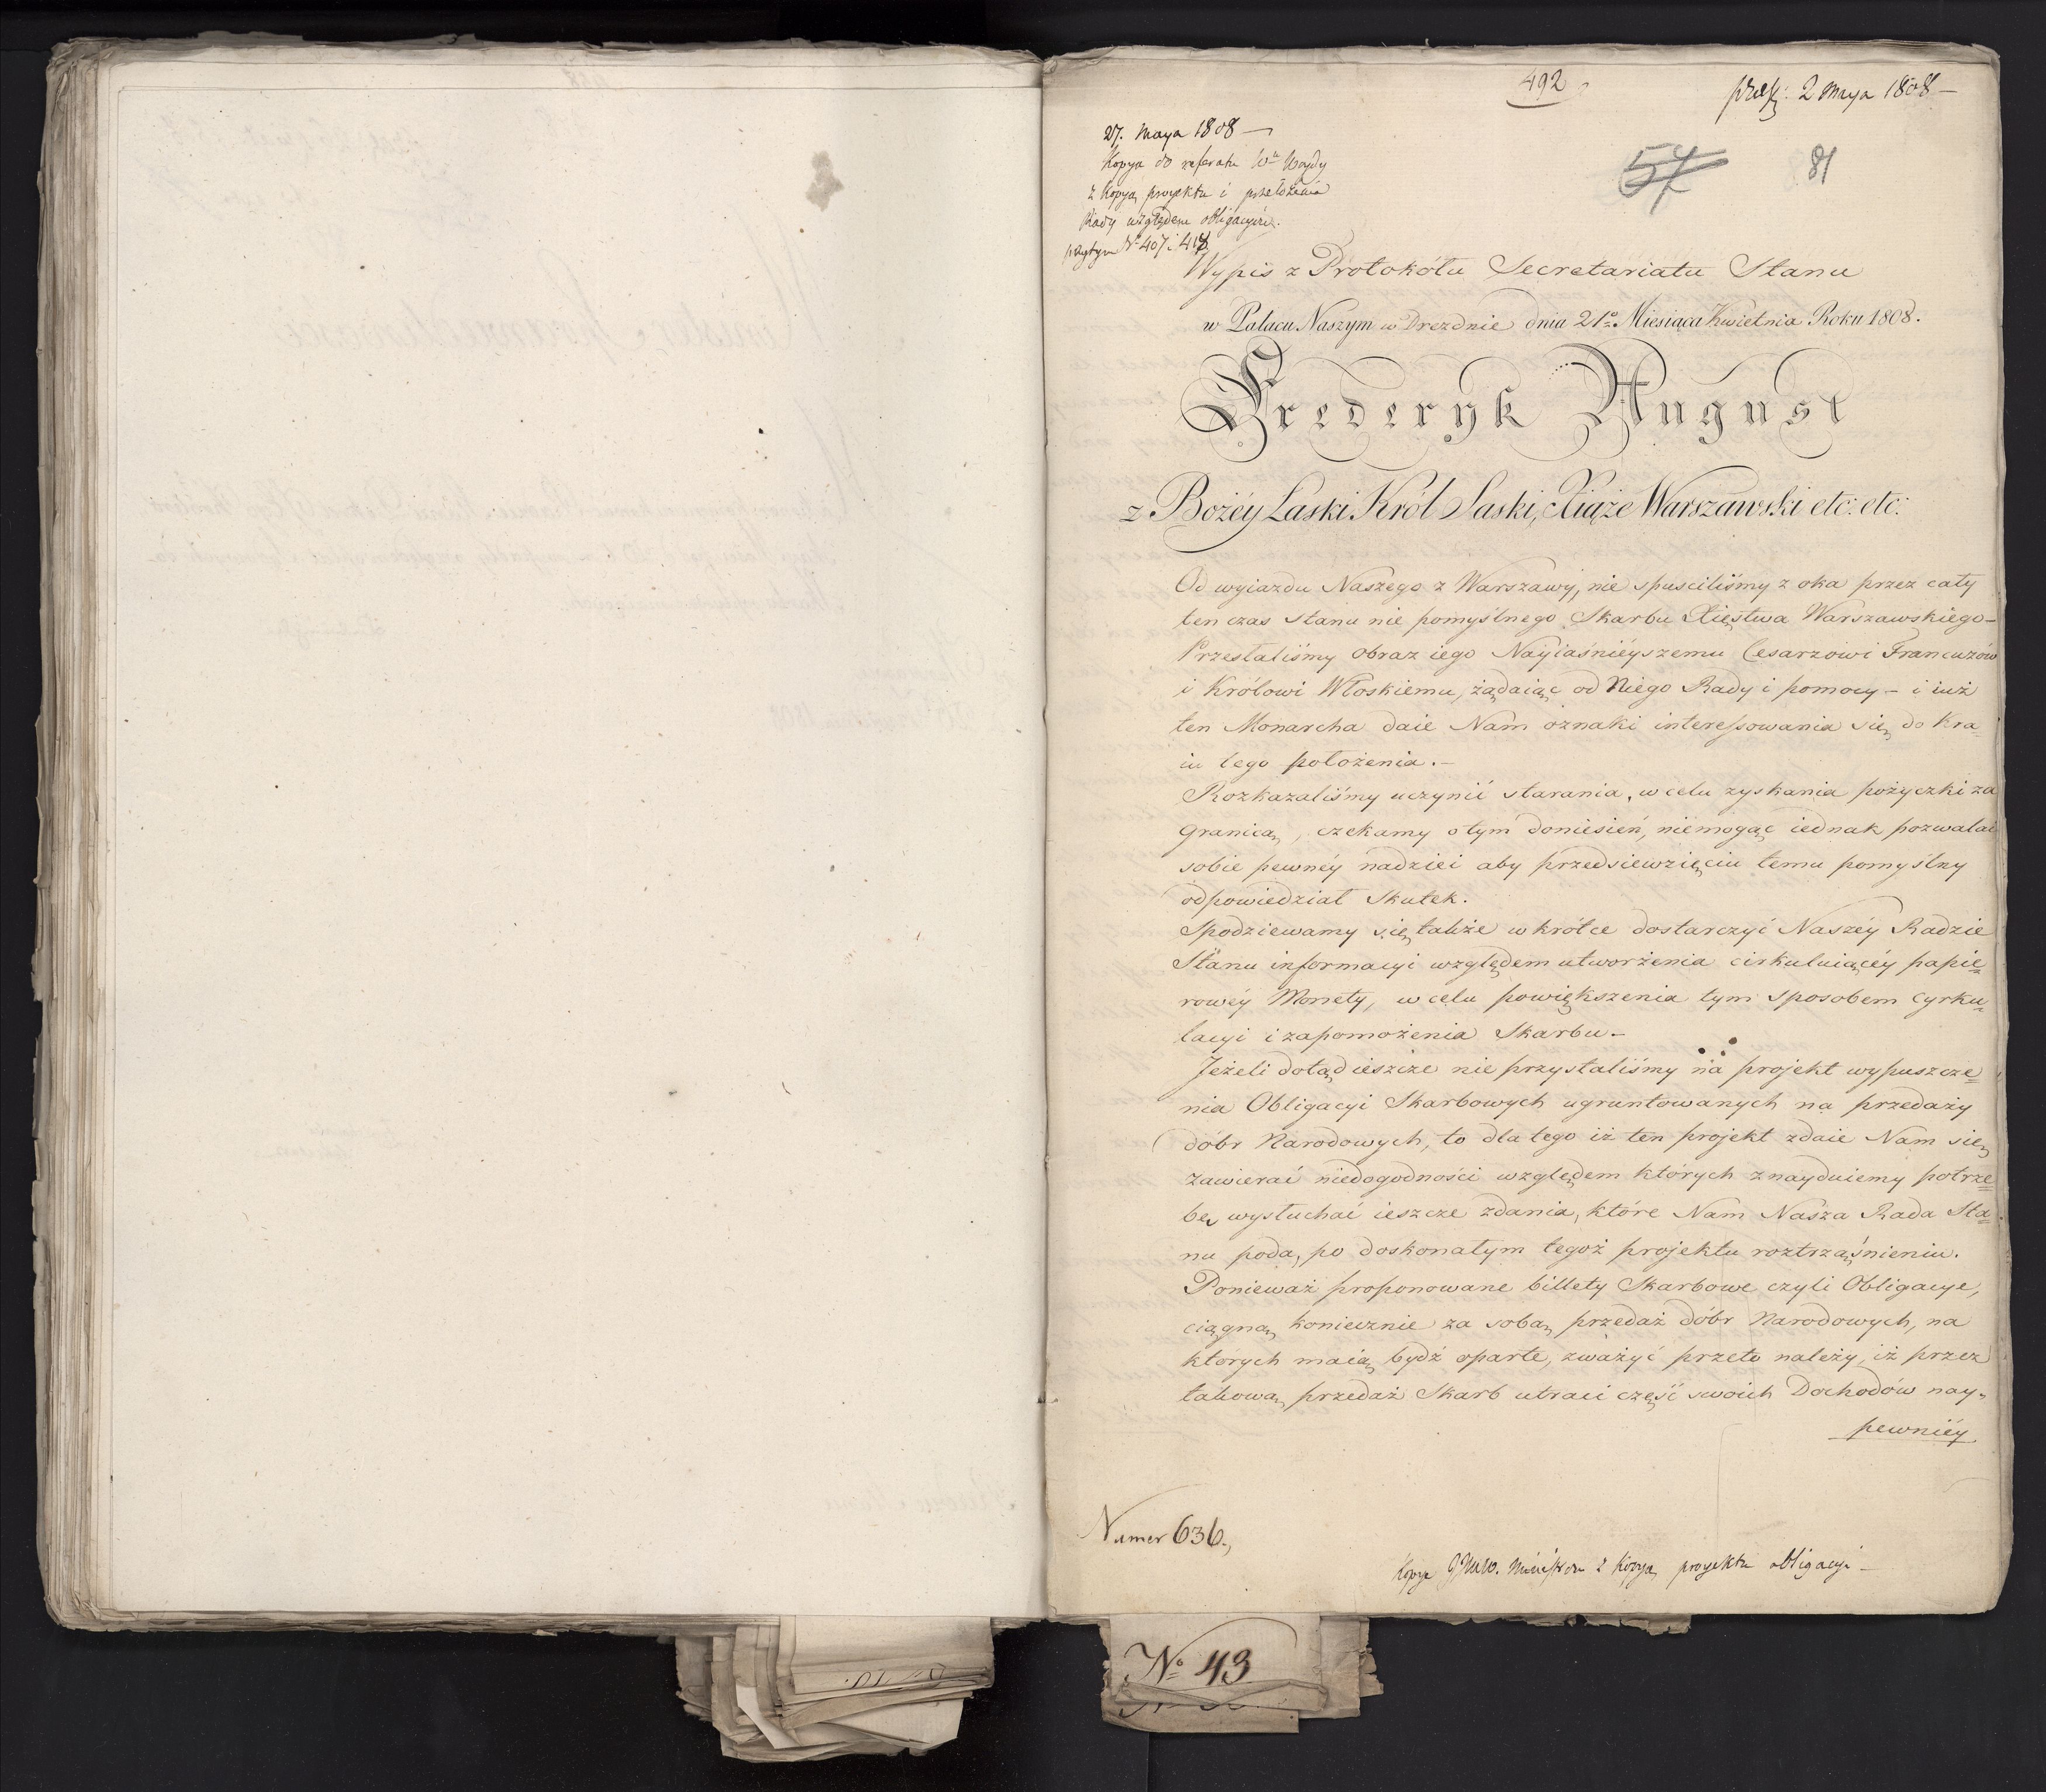 492
praes: 2 Maya 1808 —
27. Maya 1808 —
Kopya do referatu
z kopyą proyektu i przełożenia
Rady względem obligacyów.
przytym Nº 407 i 418
57
81
Wypis z Protokółu Secretariatu Stanu
w Pałacu Naszym w Drezdnie dnia 21º Miesiąca Kwietnia Roku 1808.
Frederyk August
z Bożéy Łaski Król Saski, Xiąże Warszawski etc: etc:
Od wyiazdu Naszego z Warszawy, nie spusciliśmy z oka przez cały
ten czas stanu nie pomyślnego Skarbu Xięstwa Warszawskiego —
Przesłaliśmy obraz iego Nayiaśnieyszemu Cesarzowi Francuzów
i Królowi Włoskiemu, żądaiąc od Niego Rady i pomocy — i iuż
ten Monarcha daie Nam oznaki interessowania się do kra-
iu tego położenia. —
Rozkazaliśmy uczynić starania, w celu zyskania pożyczki za
granicą, czekamy o tym doniesień, niemogąc iednak pozwalać
sobie pewnéy nadziei aby przedsiewzięciu temu pomyślny
odpowiedział Skutek.
Spodziewamy się także w krótce dostarczyć Naszéy Radzie
Stanu informacyi względem utworżenia cirkuluiącéy papie=
rowéy Monety, w celu powiększenia tym sposobem cyrku=
lacyi i zapomożenia Skarbu —
Jeżeli dotąd ieszcze nie przystaliśmy na projekt wypuszcze=
nia Obligacyi Skarbowych ugruntowanych na przedaży
dóbr Narodowych, to dla tego iż ten projekt zdaie Nam się
zawierać niedogodności względem których znayduiemy potrze=
bę wysłuchać ieszcze zdania, które Nam Nasza Rada Sta=
nu poda, po doskonałym tegoż projektu roztrząśnieniu.
Ponieważ proponowane billety Skarbowe czyli Obligacye,
ciągną koniecznie za sobą przedaż dóbr Narodowych, na
których maią bydź oparte, zważyć przeto należy, iż przez
takową przedaż Skarb utraci część swoich Dochodów nay=
pewniéy
Numer 636.,
Kopye JWW. Ministrom z kopyą proyektu obligacyi —
Nº 43